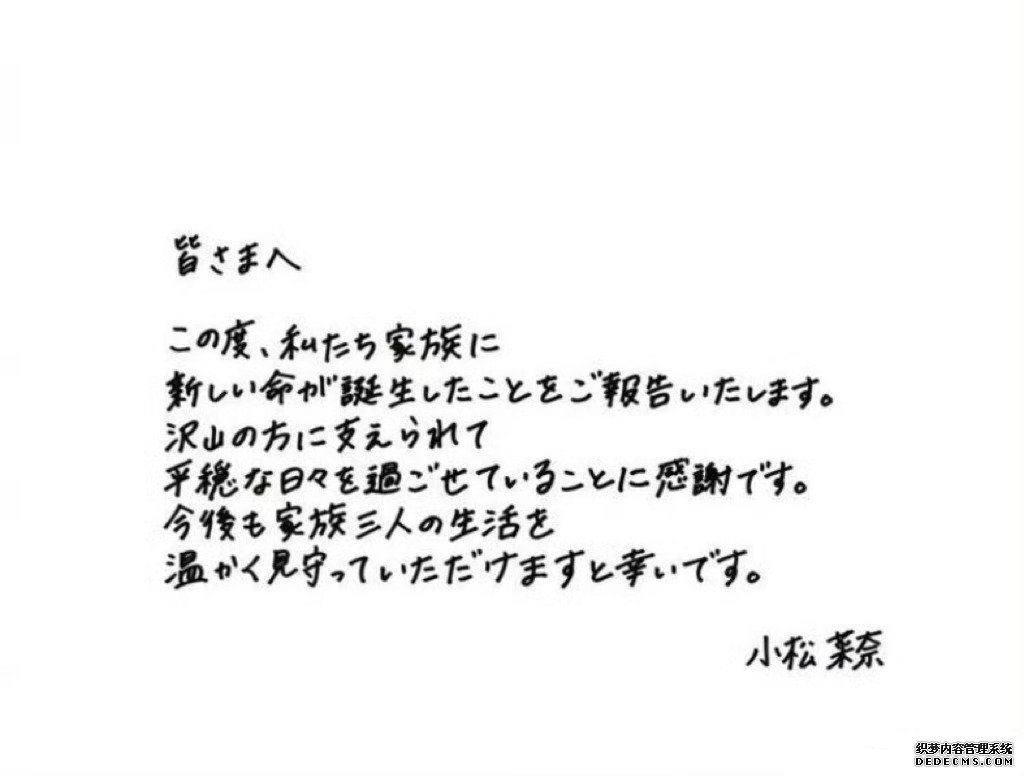 皆さまへ
この度、私たち家族に
新しい命が誕生したことをご報告いたします。
沢山の方に支えられて
平穏な日々を過ごせていることに感謝です。
今後も家族三人の生活を
温かく見守っていただけますと幸いです。
小松菜奈
织梦内容管理系统
DEDECMS.COM